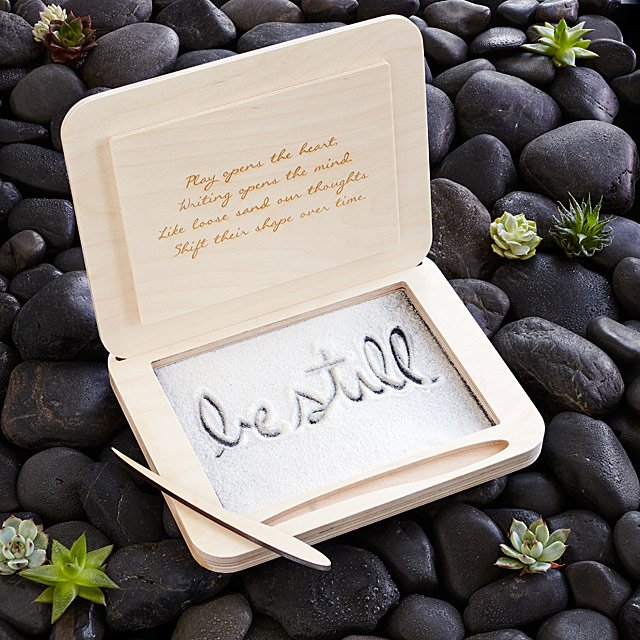 Play opens the heart.
Writing opens the mind.
Like loose sand our thoughts
Shift their shape over time.
be still